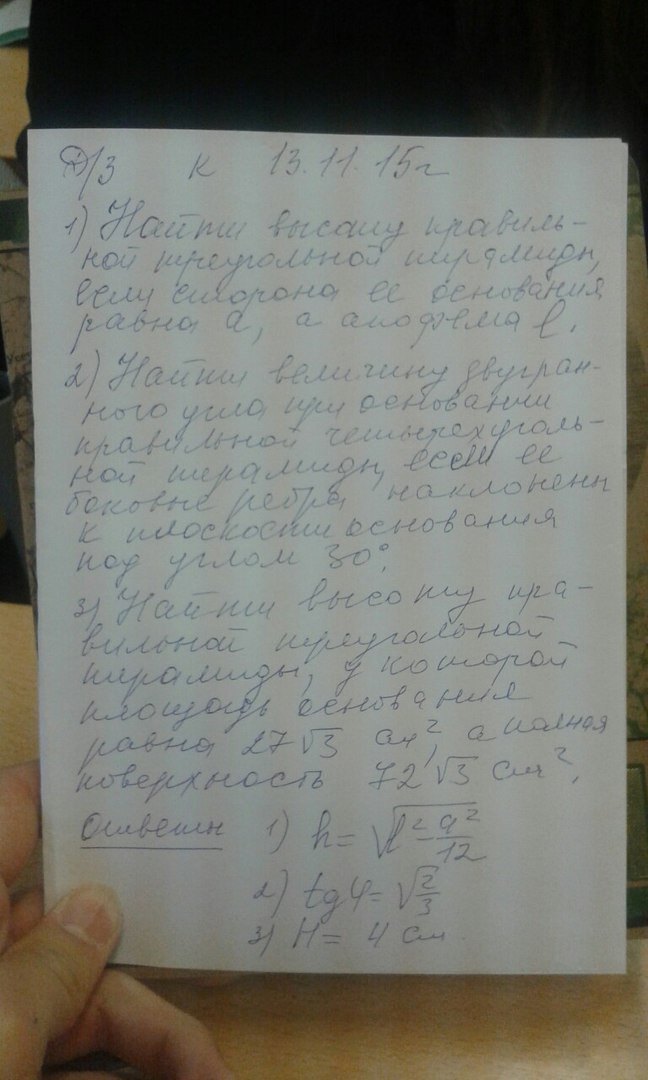 Д/З К 13.11.15г
1) Найти высоту правиль-
ной треугольной пирамиды,
если сторона ее основания
равна a, а апофема l.
2) Найти величину двугран-
ного угла при основании
правильной четырехуголь-
ной пирамиды, если ее
боковые ребра наклонены
к плоскости основания
под углом 30°.
3) Найти высоту пра-
вильной треугольной
пирамиды, у которой
площадь основания
равна 27√3 см², а полная
поверхность 72√3 см².
Ответы 1) h = √(l² - a²/12)
2) tgφ = √(2/3)
3) H = 4 см.